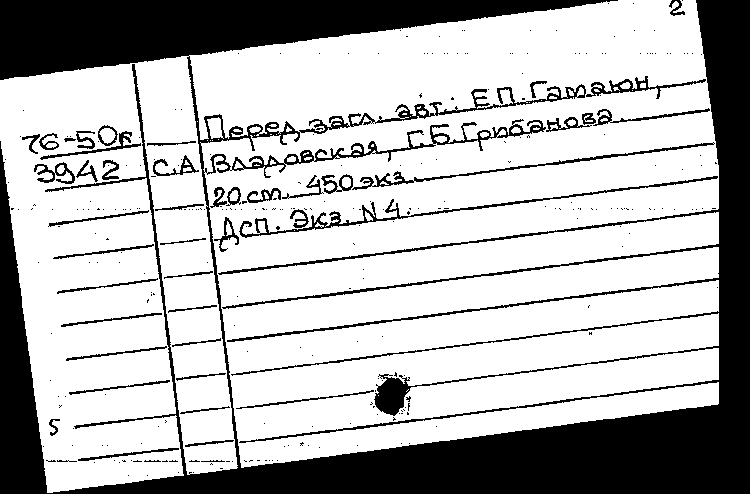 2
76-50к Перед загл. авт.: Е.П.Гамаюн,
3942 С.А. Владовская, Г.Б.Грибанова.
20 см. 450 экз.
Дсп. Экз. N 4.
5